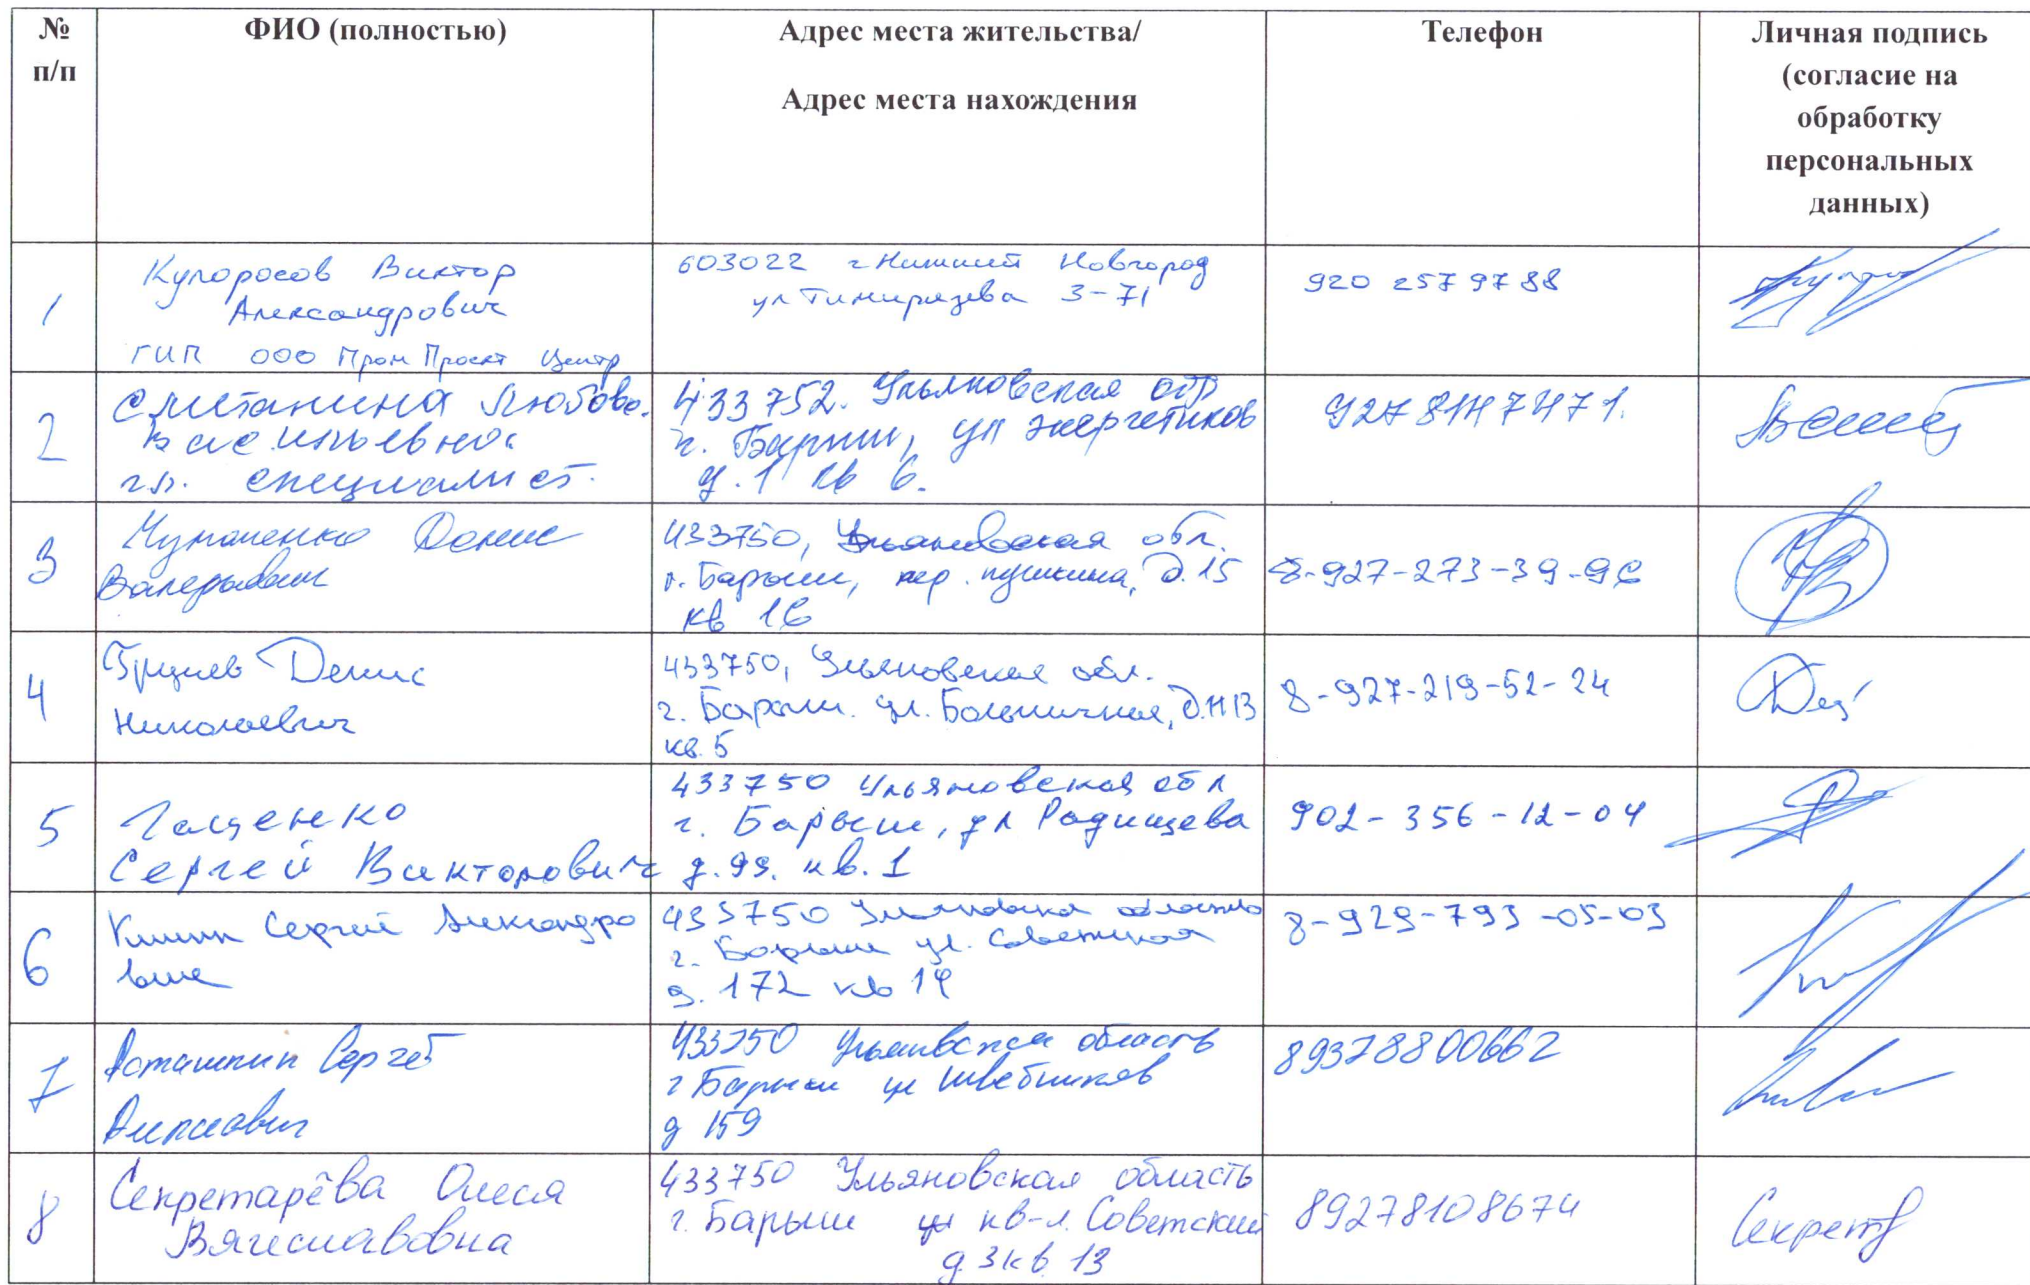 № п/п
ФИО (полностью)
Адрес места жительства/
Адрес места нахождения
Телефон
Личная подпись
(согласие на
обработку
персональных
данных)
1
Купоросов Виктор
Александрович
ГИП ООО Пром Проект Центр
603022 г Нижний Новгород
ул Тимирязева 3-71
920 257 97 88
2
Сметанина Любовь
Васильевна
гл. специалист.
433752. Ульяновская обл
г. Барыш, ул Энергетиков
д. 1 кв 6.
3
Денис
Валерьевич
433750, Ульяновская обл.
г. Барыш, пер. Пушкина, д. 15
кв 16
8-927-273-39-96
4
Денис
Николаевич
433750, Ульяновская обл.
г. Барыш. ул. Больничная,
кв. 5
8-927-219-52-24
5
Гащенко
Сергей Викторович
433750 Ульяновская обл
г. Барыш, ул Радищева
д. 99. кв. 1
902-356-12-04
6
Сергей Александро
вич
433750 Ульяновская область
г. Барыш ул. Советская
д. 172 кв
8-929-793-05-03
7
Сергей
433750 Ульяновская область
г Барыш ул
д 159
89378800662
8
Секретарёва Олеся
Вячеславовна
433750 Ульяновская область
г. Барыш кв-л. Советский
д. 3 кв. 13
89278108674